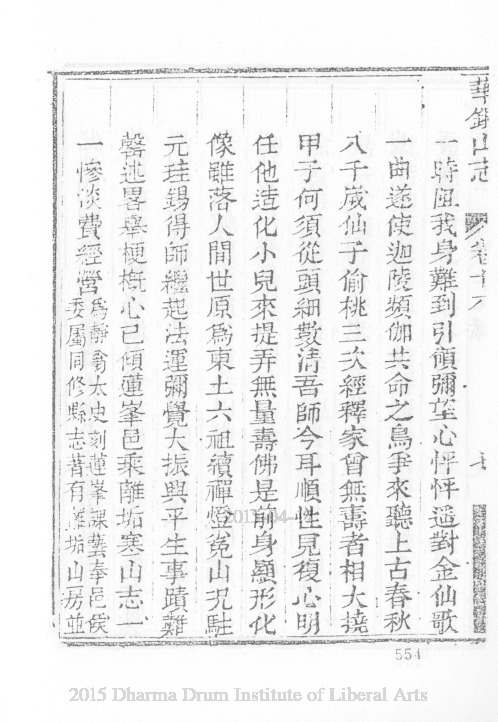 華銀山志 卷十六 七
一時阻我身難到引領彌望心怦怦遥對金仙歌
一曲遂使迦陵頻伽共命之鳥爭來聽上古春秋
八千歲仙子偷桃三次經釋家曾無壽者相大撓
甲子何須從頭細數清吾師今耳順性見復心明
任他造化小兒來提弄無量壽佛是前身顯形化
像雖落人間世原爲東土六祖續禪燈 山況駐
元珪錫得師繼起法運彌覺大振與平生事蹟難
罄述畧舉梗概心已傾蓮峯邑乘離垢寒山志一
一慘淡費經營爲靜 太史刻蓮峯課藝奉邑侯
委屬同修縣志著有離垢山房並
554
2015 Dharma Drum Institute of Liberal Arts